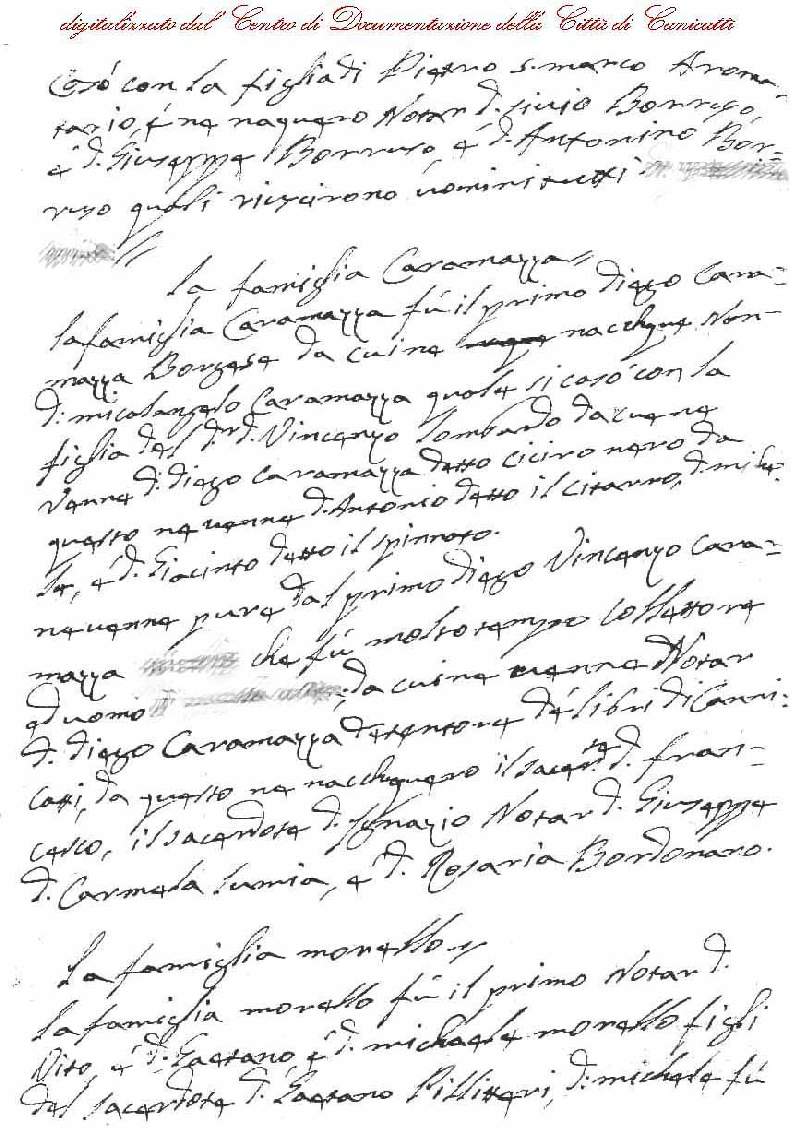 digitalizzato dal Centro di Documentazione della Città di Canicattì
Casò con la figlia di Pietro s. marco Aroma-
tario, é ne naquero Notar d. Livio Borruso,
é d. Giuseppe Borruso, é d. Antonino Bor=
ruso quali riuscirono uomini tutti
la famiglia Caramazza
la famiglia Caramazza fú il primo diego Cara=
mazza Borgese da cui ne nacchque Non-
d. micalangelo Caramazza quale si casò con la
figlia del dr. d. Vincenzo lombardo da cui ne
venne d. diego Caramazza detto ciciro nero da
questo ne venne d. Antonio detto il citarro, d. miche
le, é d. Giacinto detto il spinnato.
ne venne pure dal primo diego Vincenzo Cara=
mazza che fú molto tempo Collettore
ed uomo da cui ne venne Notar
d. diego Caramazza detentore dé libri di Canni=
catti, da questo ne nacchquero il sacerd.te d. fran=
cesco, il sacerdote d. Ignazio Notar d. Giuseppe
d. Carmela lumia, é d. Rosaria Bordonaro.
la famiglia morello
la famiglia morello fú il primo Notar d.
Vito, é d. Gaetano é d. michaele morello figli
del sacerdote d. Gaetano Pillitteri, d. michele fú